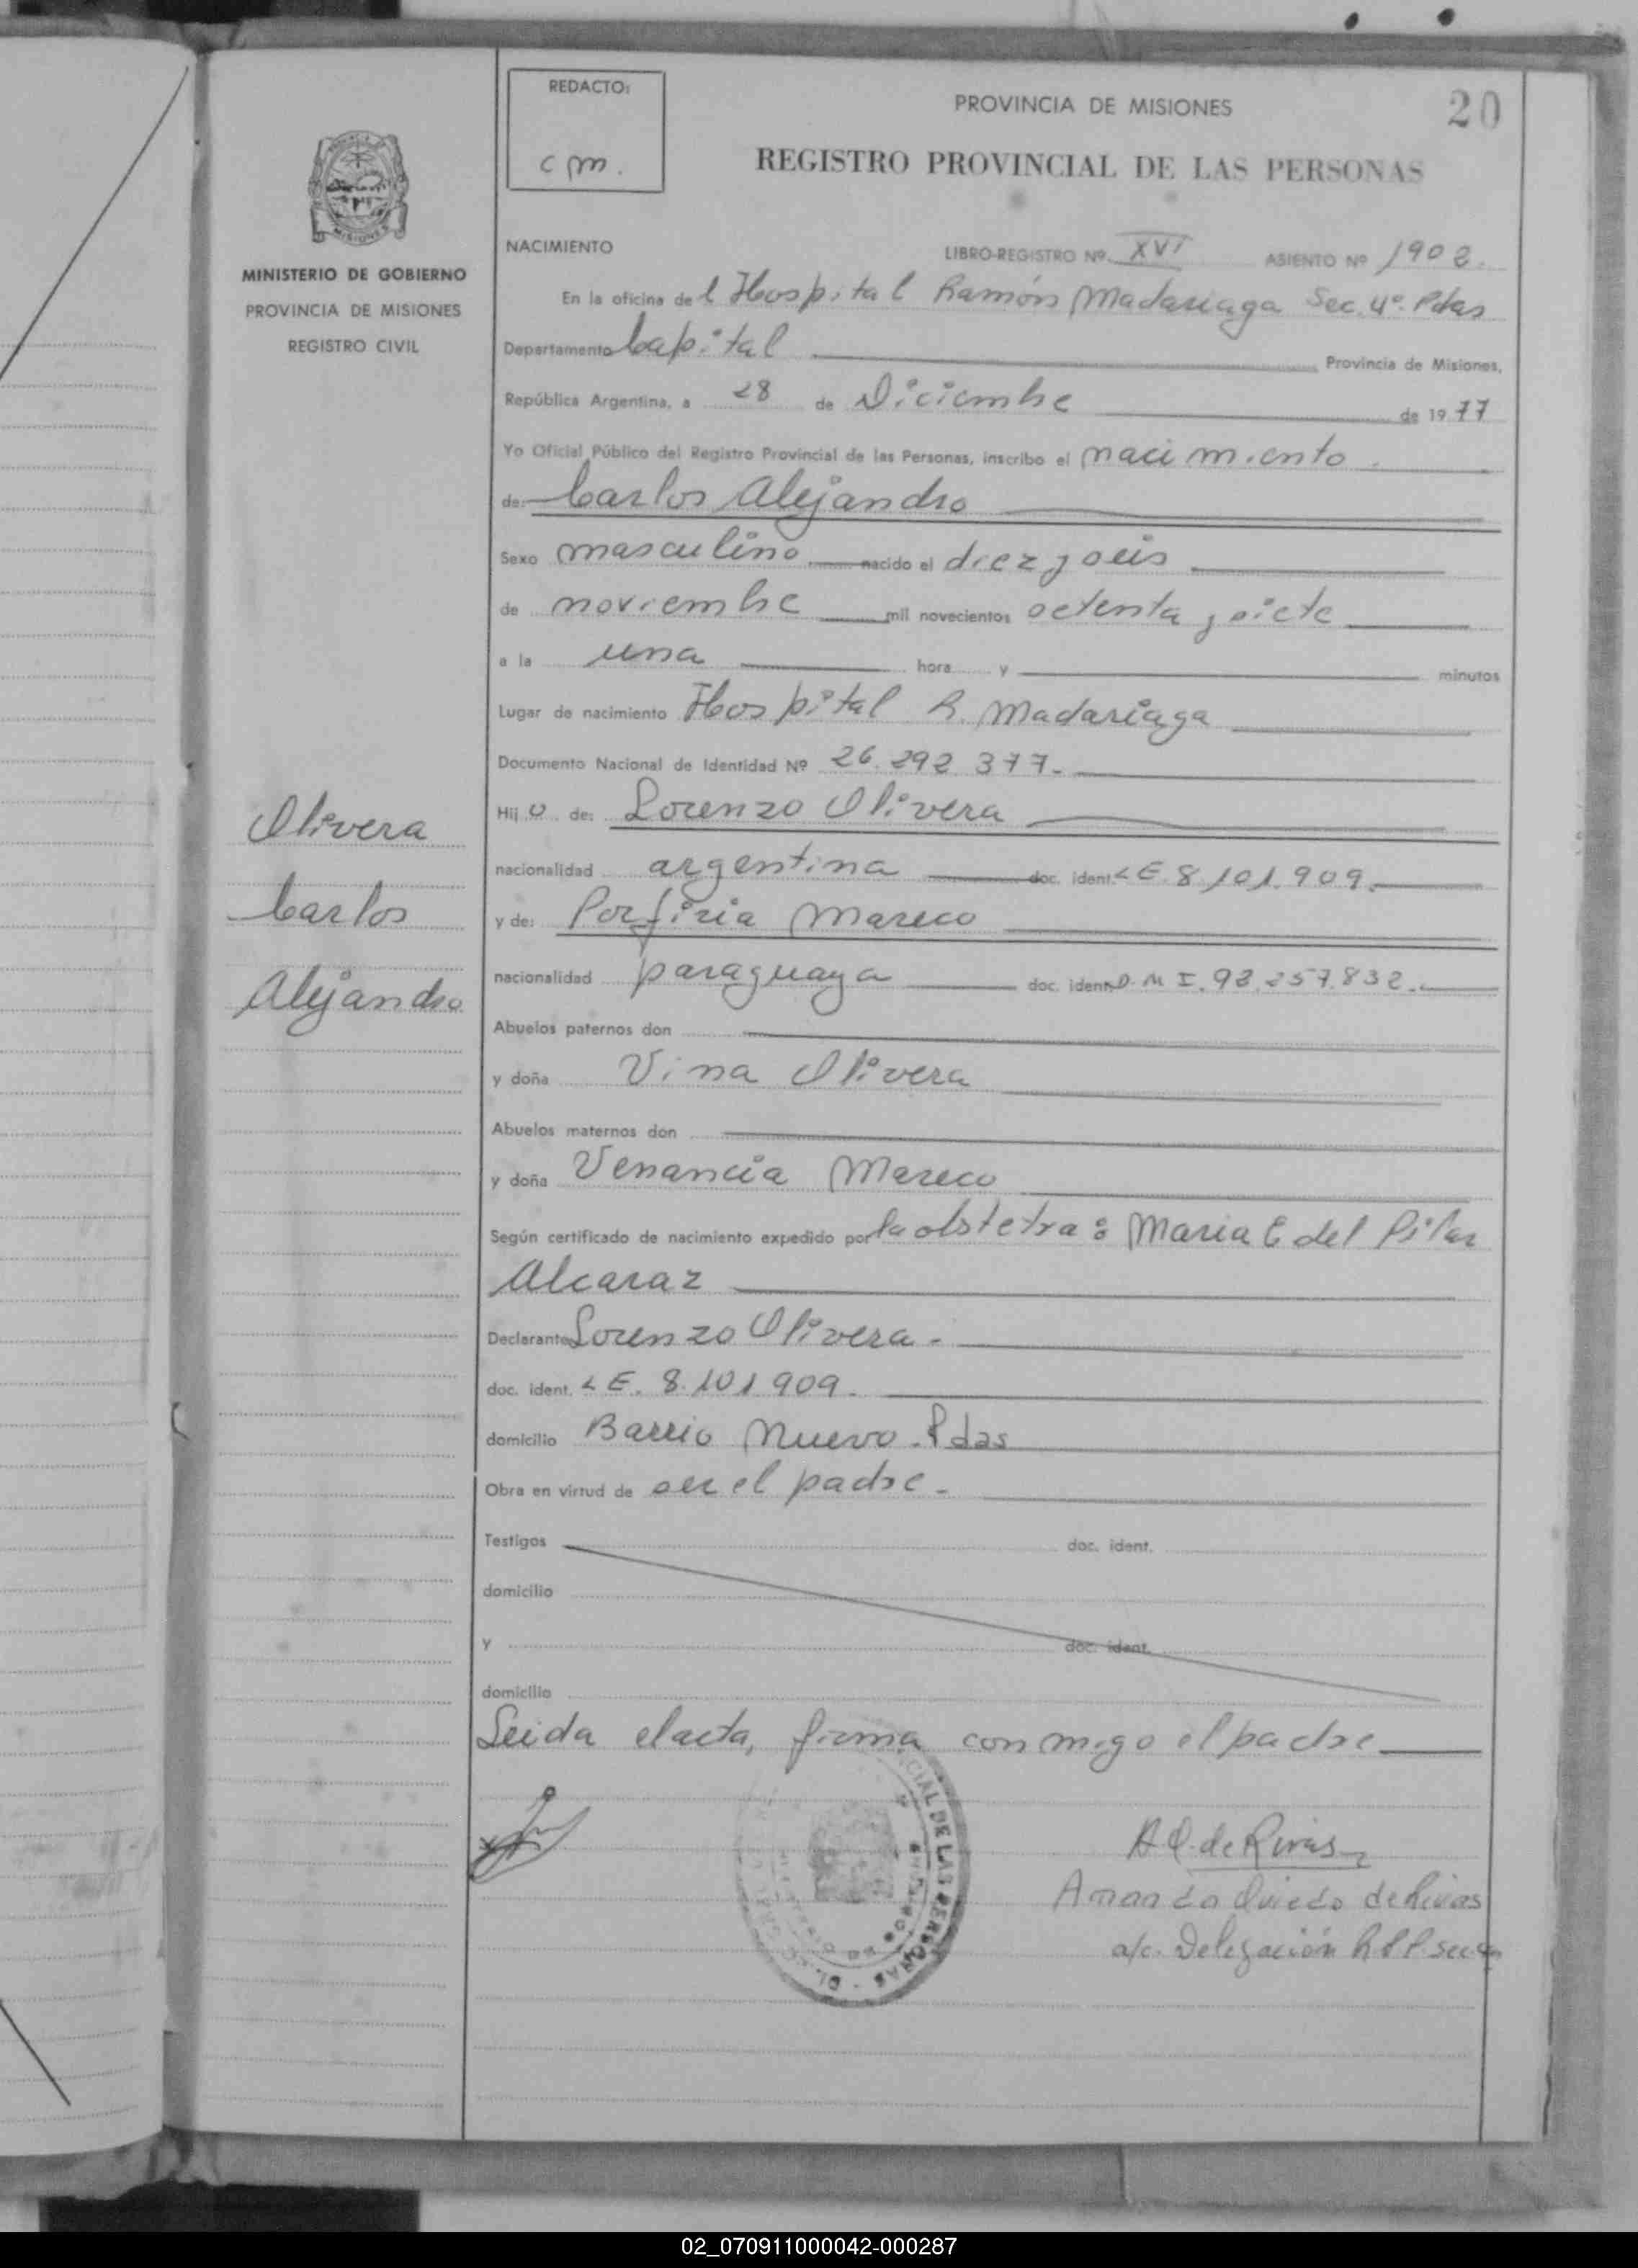 REDACTO:
cm.
PROVINCIA DE MISIONES
20
REGISTRO PROVINCIAL DE LAS PERSONAS
MINISTERIO DE GOBIERNO
PROVINCIA DE MISIONES
REGISTRO CIVIL
NACIMIENTO LIBRO-REGISTRO Nº XVI ASIENTO Nº 1902.
En la oficina del Hospital Ramón Madariaga Sec. 4º. Pdas
Departamento Capital Provincia de Misiones,
República Argentina, a 28 de Diciembre de 1977
Yo Oficial Público del Registro Provincial de las Personas, inscribo el nacimiento.
de: Carlos Alejandro
Sexo masculino nacido el diez y seis
de noviembre mil novecientos setenta y siete
a la una hora y minutos
Lugar de nacimiento Hospital R. Madariaga
Documento Nacional de Identidad Nº 26.292.377.-
Hijo de: Lorenzo Olivera
nacionalidad argentina doc. ident. L E. 8.101.909.
y de: Porfiria Mareco
nacionalidad paraguaya doc. ident. D. M I. 92.257.832.
Abuelos paternos don
y doña Vina Olivera
Abuelos maternos don
y doña Venancia Mareco
Según certificado de nacimiento expedido por la obstetra: Maria E del Pilar
Alcaraz
Declarante Lorenzo Olivera.-
doc. ident. L E. 8.101.909.
domicilio Barrio Nuevo. Pdas
Obra en virtud de ser el padre.-
Testigos doc. ident.
domicilio
y doc. ident.
domicilio
Leida el acta, firma conmigo el padre
Olivera
Carlos
Alejandro
CIAL DE LAS PERSONAS
A O. de Rivas
Amanda Oviedo de Rivas
a/c. Delegación R P P. Sec 4º
02_070911000042-000287